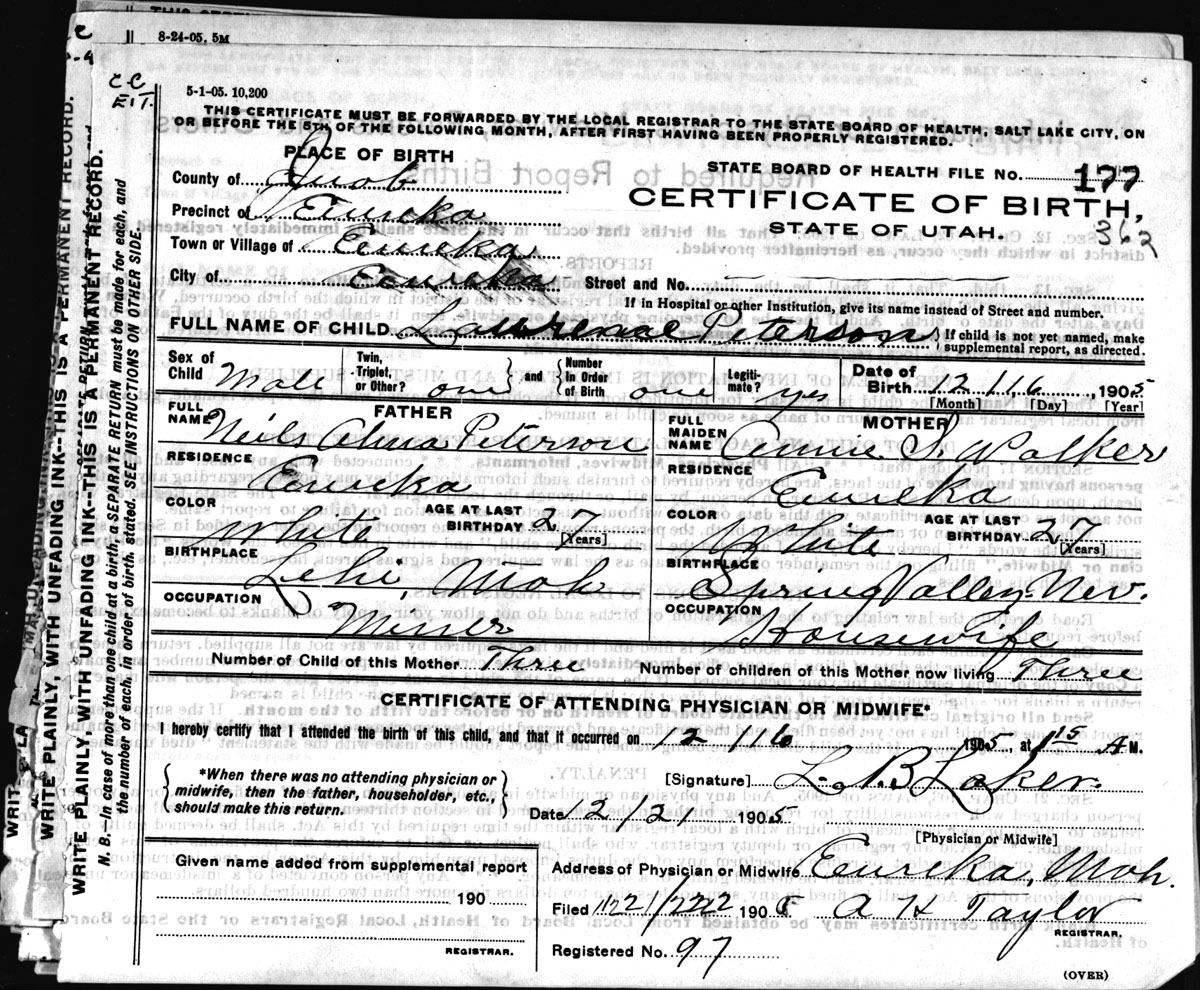 8-24-05. 5M
C.C.
E.I.T.
5-1-05. 10,200
THIS CERTIFICATE MUST BE FORWARDED BY THE LOCAL REGISTRAR TO THE STATE BOARD OF HEALTH, SALT LAKE CITY, ON
OR BEFORE THE 5TH OF THE FOLLOWING MONTH, AFTER FIRST HAVING BEEN PROPERLY REGISTERED.
PLACE OF BIRTH
County of Juab
Precinct of Eureka
Town or Village of Eureka
City of Eureka
STATE BOARD OF HEALTH FILE No. 177
CERTIFICATE OF BIRTH,
STATE OF UTAH.
362
Street and No.
If in Hospital or other Institution, give its name instead of Street and number.
FULL NAME OF CHILD Lawrence Peterson { If child is not yet named, make supplemental report, as directed.
Sex of Child Male Twin, Triplet, or Other? one } and { Number in Order of Birth one Legitimate? yes Date of Birth 12 / 16, 1905
[Month] [Day] [Year]
FATHER
FULL NAME Neils Alma Peterson
RESIDENCE Eureka
COLOR White AGE AT LAST BIRTHDAY 27 [Years]
BIRTHPLACE Lehi,
OCCUPATION Miner
MOTHER
FULL MAIDEN NAME Annie S. Walker
RESIDENCE Eureka
COLOR White AGE AT LAST BIRTHDAY 27 [Years]
BIRTHPLACE Spring Valley Nev.
OCCUPATION Housewife
Number of Child of this Mother Three Number of children of this Mother now living Three
CERTIFICATE OF ATTENDING PHYSICIAN OR MIDWIFE*
I hereby certify that I attended the birth of this child, and that it occurred on 12 / 16 1905, at 1 15 A M.
{ *When there was no attending physician or midwife, then the father, householder, etc., should make this return. }
[Signature] L. B. Laker.
Date 12/21 1905.
[Physician or Midwife]
Given name added from supplemental report
190
REGISTRAR.
Address of Physician or Midwife Eureka,
Filed 12/22 1905 A H Taylor
REGISTRAR.
Registered No. 97
(OVER)
WRITE PLAINLY, WITH UNFADING INK--THIS IS A PERMANENT RECORD.
WRITE PLAINLY, WITH UNFADING INK--THIS IS A PERMANENT RECORD.
N. B.--In case of more than one child at a birth, a SEPARATE RETURN must be made for each, and
the number of each, in order of birth, stated. SEE INSTRUCTIONS ON OTHER SIDE.